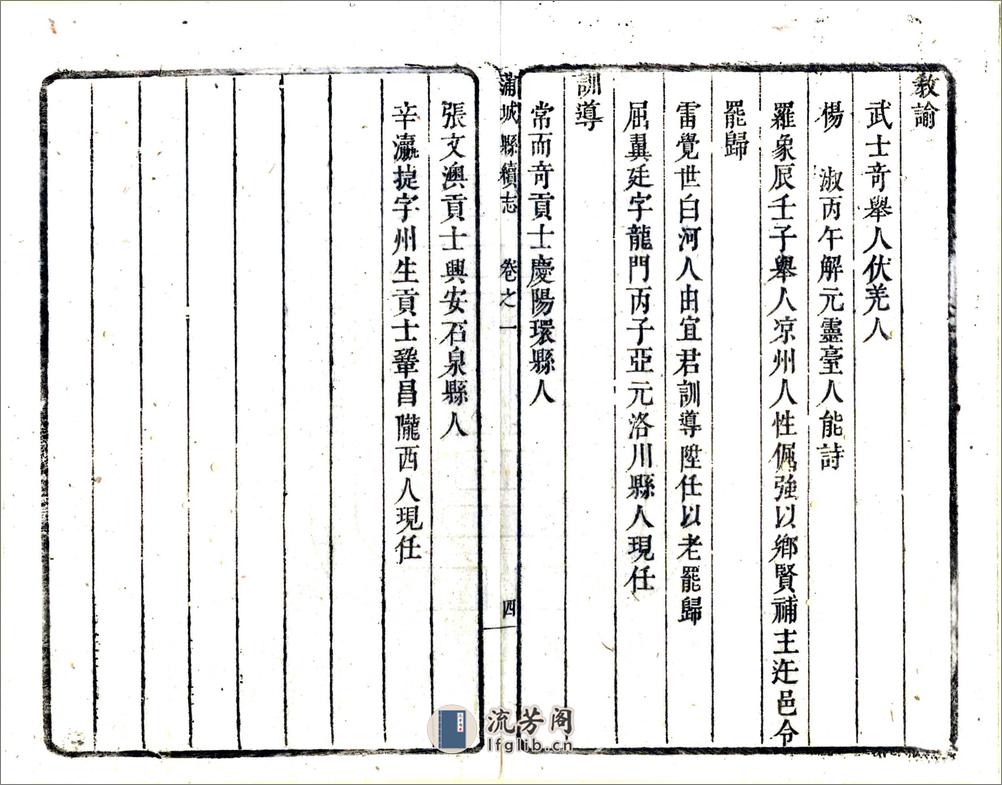 教諭
武士奇舉人伏羌人
楊　淑丙午解元靈臺人能詩
羅象辰壬子舉人凉州人性倔強以鄉賢補主迕邑令
罷歸
雷覺世白河人由宜君訓導陞任以老罷歸
屈翼廷字龍門丙子亞元洛川縣人現任
訓導
常而奇貢士慶陽環縣人
蒲城縣續志　卷之一　四
張文澳貢士興安石泉縣人
辛瀛㨗字州生貢士鞏昌隴西人現任
流芳阁
lfglib.cn